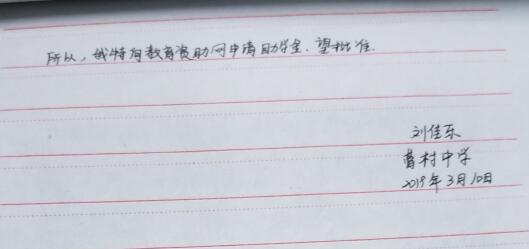 所以，我特向教育资助网申请助学金，望批准。
刘佳乐
曹村中学
2019年3月10日